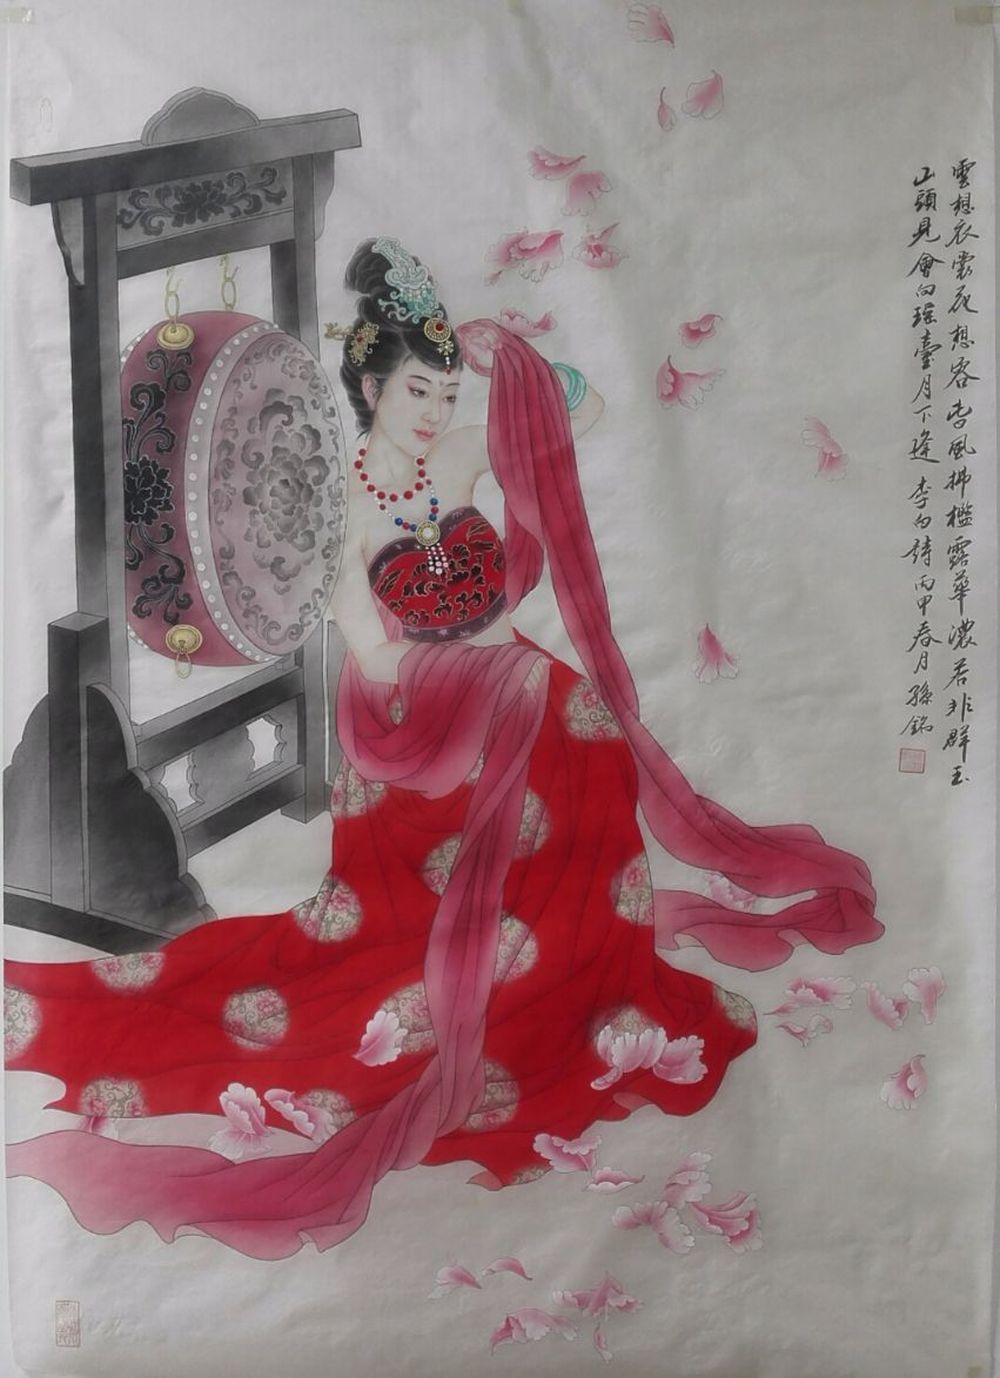 雲想衣裳花想容春風拂檻露華濃若非群玉
山頭見會向瑤臺月下逢 李白詩 丙申春月 孫銘